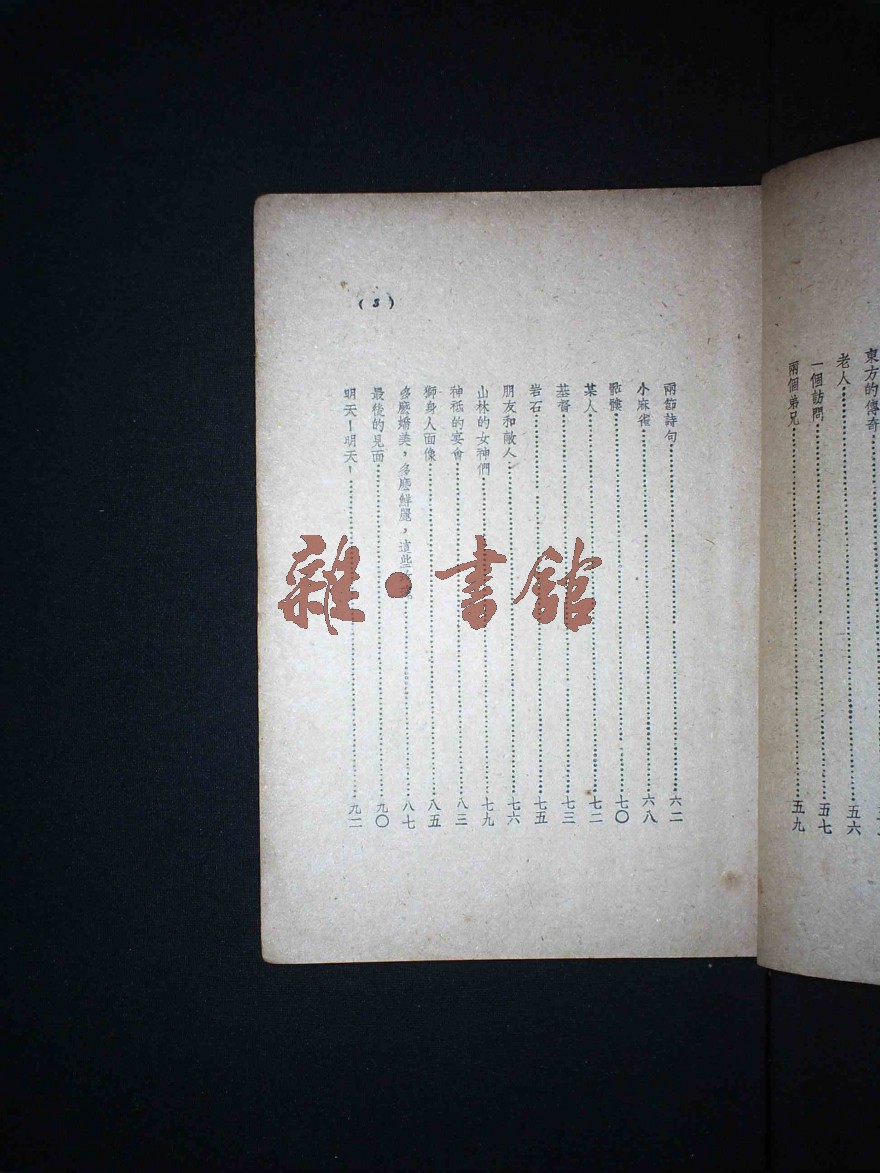 東方的傳奇
老人……五六
一個訪問……五七
兩個弟兄……五九
(3)
兩節詩句……六二
小麻雀……六八
骷髏……七〇
某人……七二
基督……七三
岩石……七五
朋友和敵人……七六
山林的女神們……七九
神祇的宴會……八三
獅身人面像……八五
多麼嬌美，多麼鮮麗，這些……八七
最後的見面……九〇
明天！明天！……九二
雜·書館